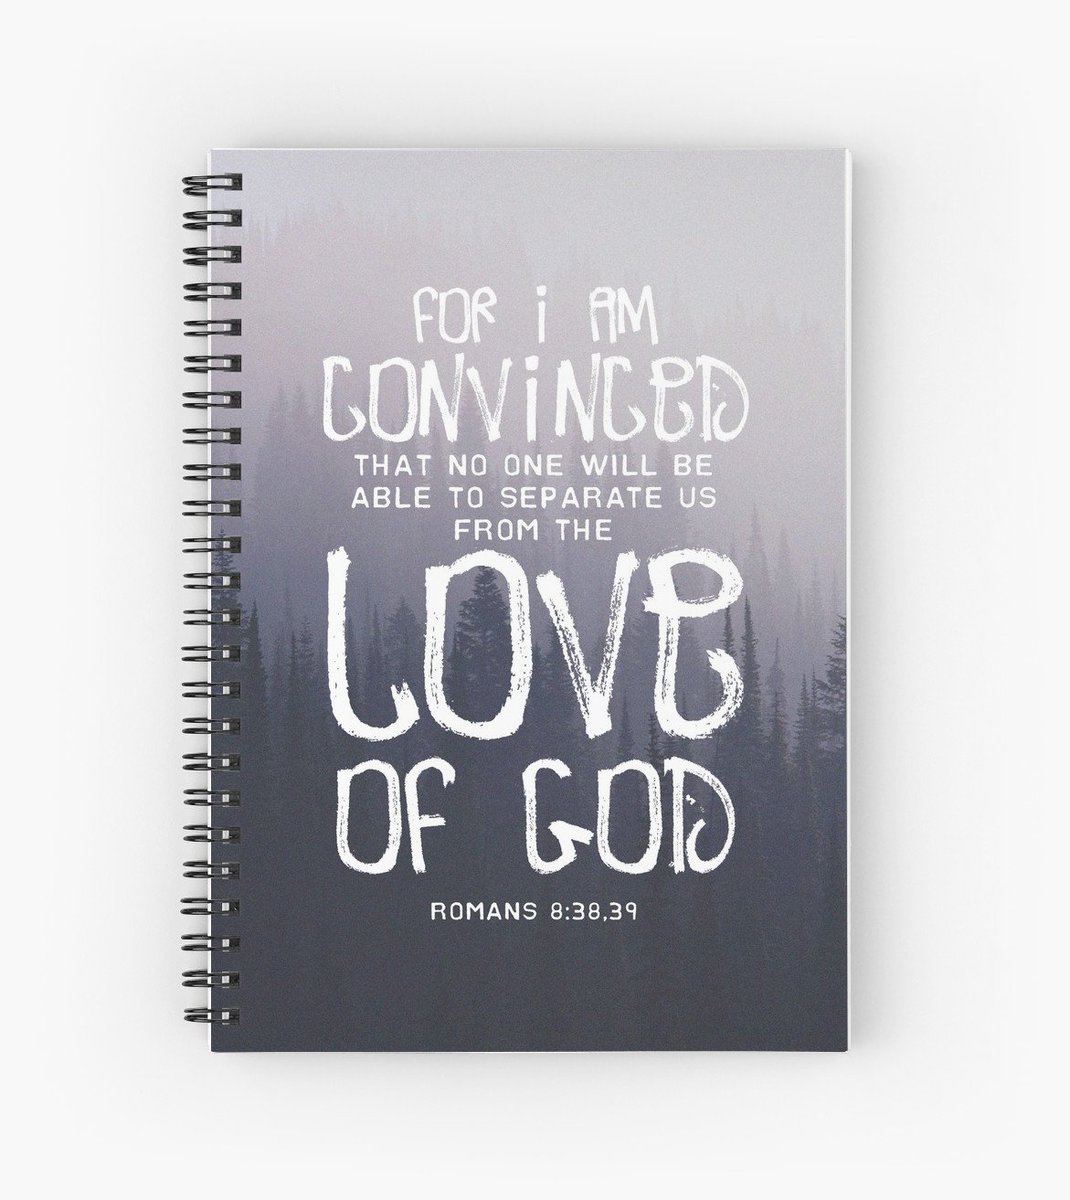 FOR i AM
CONViNCED
THAT NO ONE WILL BE
ABLE TO SEPARATE US
FROM THE
LOVE
OF GOD
ROMANS 8:38,39